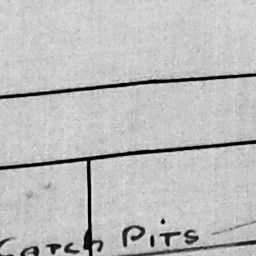 Catch Pits